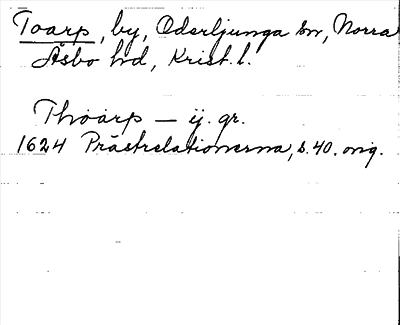 Toarp, by, Oderljunga sn, Norra
Åsbo hd, Krist. l.
Thoarp — ij. gr.
1624 Prästrelationerna, s. 40. orig.